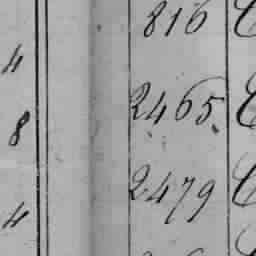 816
4
2465
8
2479
4